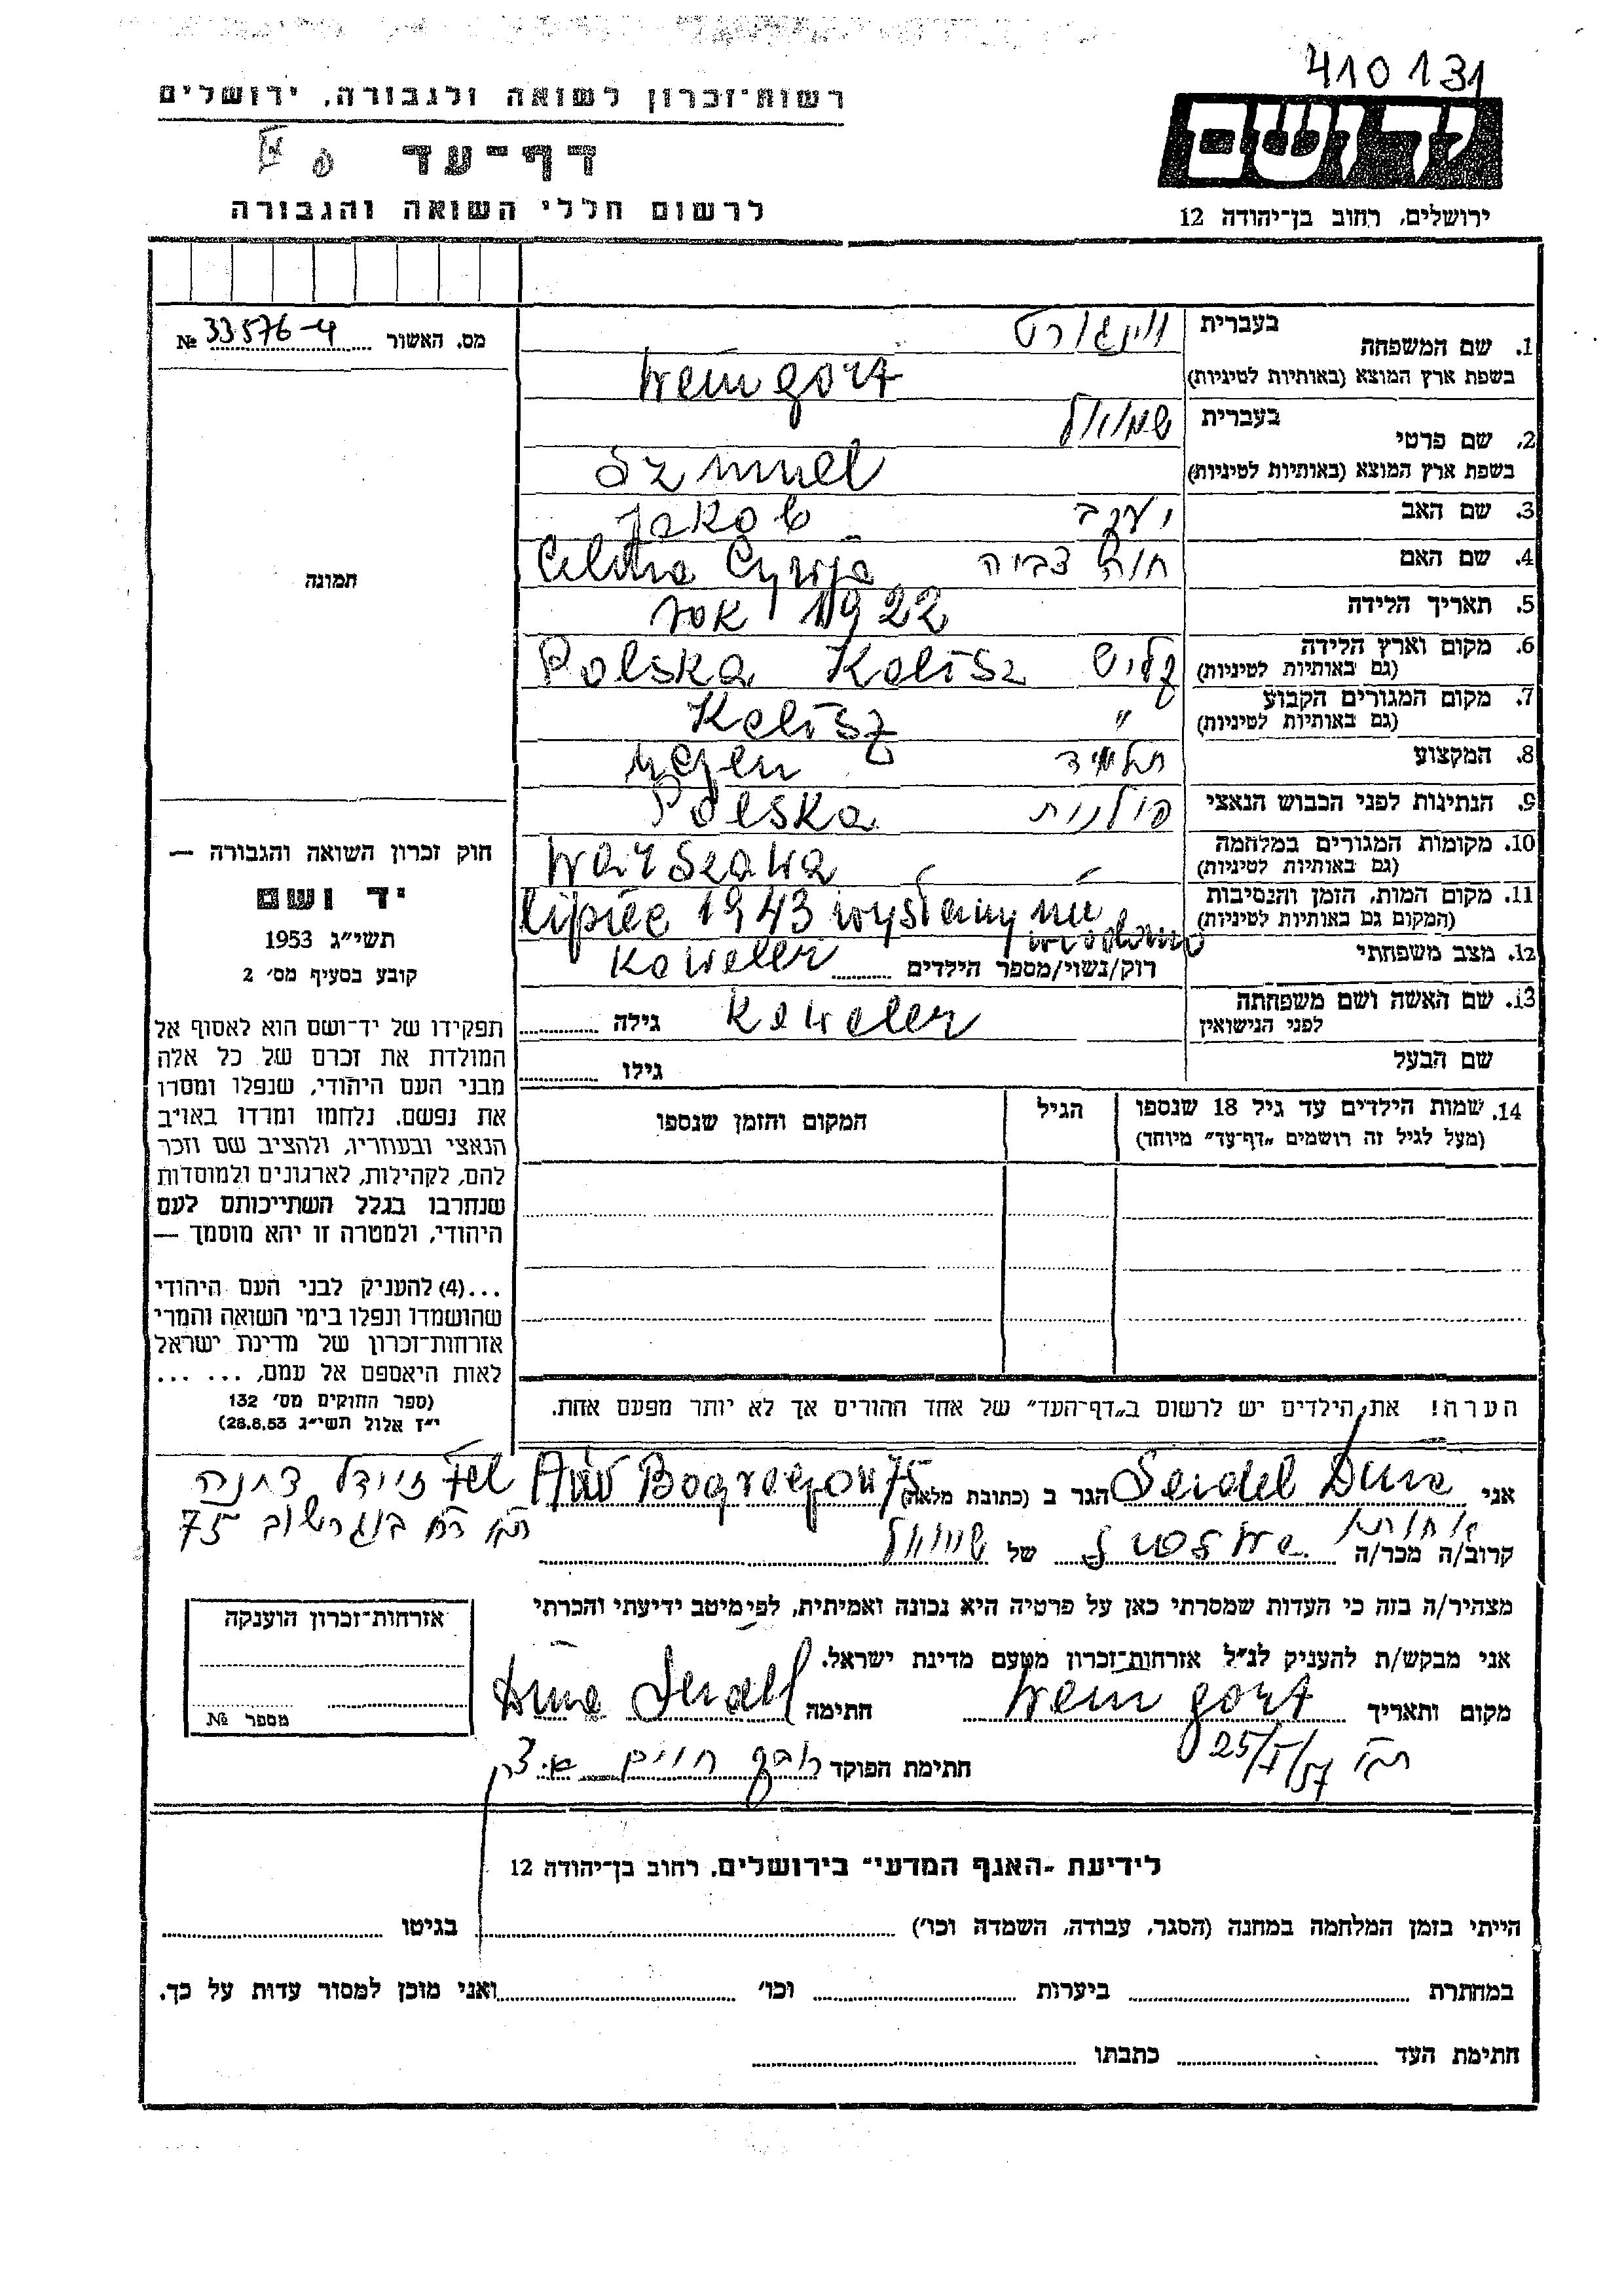 410131
רשות־זכרון לשואה ולגבורה, ירושלים
יד ושם
דף־עד
לרשום חללי השואה והגבורה
ירושלים, רחוב בן־יהודה 12
מס. האשור 33576-4 №
1. שם המשפחה בעברית ווינגורט
בשפת ארץ המוצא (באותיות לטיניות) Weingort
2. שם פרטי בעברית שמואל
בשפת ארץ המוצא (באותיות לטיניות) Szmuel
3. שם האב יעקב Jakob
4. שם האם חוה צביה Cywja
5. תאריך הלידה rok 1922
6. מקום וארץ הלידה (גם באותיות לטיניות) קליש Polska Kalisz
7. מקום המגורים הקבוע (גם באותיות לטיניות) " Kalisz
8. המקצוע תלמיד uczen
9. הנתינות לפני הכבוש הנאצי פולנית Polska
10. מקומות המגורים במלחמה (גם באותיות לטיניות) Warszawa
11. מקום המות, הזמן והנסיבות (המקום גם באותיות לטיניות) lipiec 1943 wysłany nie wiadomo
12. מצב משפחתי רוק/נשוי/מספר הילדים kawaler
13. שם האשה ושם משפחתה לפני הנישואין kawaler גילה
שם הבעל גילו
14. שמות הילדים עד גיל 18 שנספו (מעל לגיל זה רושמים „דף־עד” מיוחד) הגיל המקום והזמן שנספו
תמונה
חוק זכרון השואה והגבורה —
יד ושם
תשי״ג 1953
קובע בסעיף מס׳ 2
תפקידו של יד־ושם הוא לאסוף אל
המולדת את זכרם של כל אלה
מבני העם היהודי, שנפלו ומסרו
את נפשם. נלחמו ומרדו באויב
הנאצי ובעוזריו, ולהציב שם וזכר
להם, לקהילות, לארגונים ולמוסדות
שנחרבו בגלל השתייכותם לעם
היהודי, ולמטרה זו יהא מוסמך —
...(4) להעניק לבני העם היהודי
שהושמדו ונפלו בימי השואה והמרי
אזרחות־זכרון של מדינת ישראל
לאות היאספם אל עמם, ... ...
(ספר החוקים מס׳ 132
י״ז אלול תשי״ג 28.8.53)
הערה! את הילדים יש לרשום ב„דף־העד” של אחד ההורים אך לא יותר מפעם אחת.
אני Seidel Dina הגר ב (כתובת מלאה) 75 Tel Aviv
זיידל דינה
75
קרוב/ה מכר/ה אחותו של שמואל
מצהיר/ה בזה כי העדות שמסרתי כאן על פרטיה היא נכונה ואמיתית, לפי מיטב ידיעתי והכרתי
אני מבקש/ת להעניק לנ״ל אזרחות־זכרון מטעם מדינת ישראל.
מקום ותאריך Weingort חתימה Dina Seidel
25/I/57
חתימת הפוקד
אזרחות־זכרון הוענקה
מספר №
לידיעת „האגף המדעי” בירושלים, רחוב בן־יהודה 12
הייתי בזמן המלחמה במחנה (הסגר, עבודה, השמדה וכו׳) בגיטו
במחתרת ביערות וכו׳ ואני מוכן למסור עדות על כך.
חתימת העד כתבתו